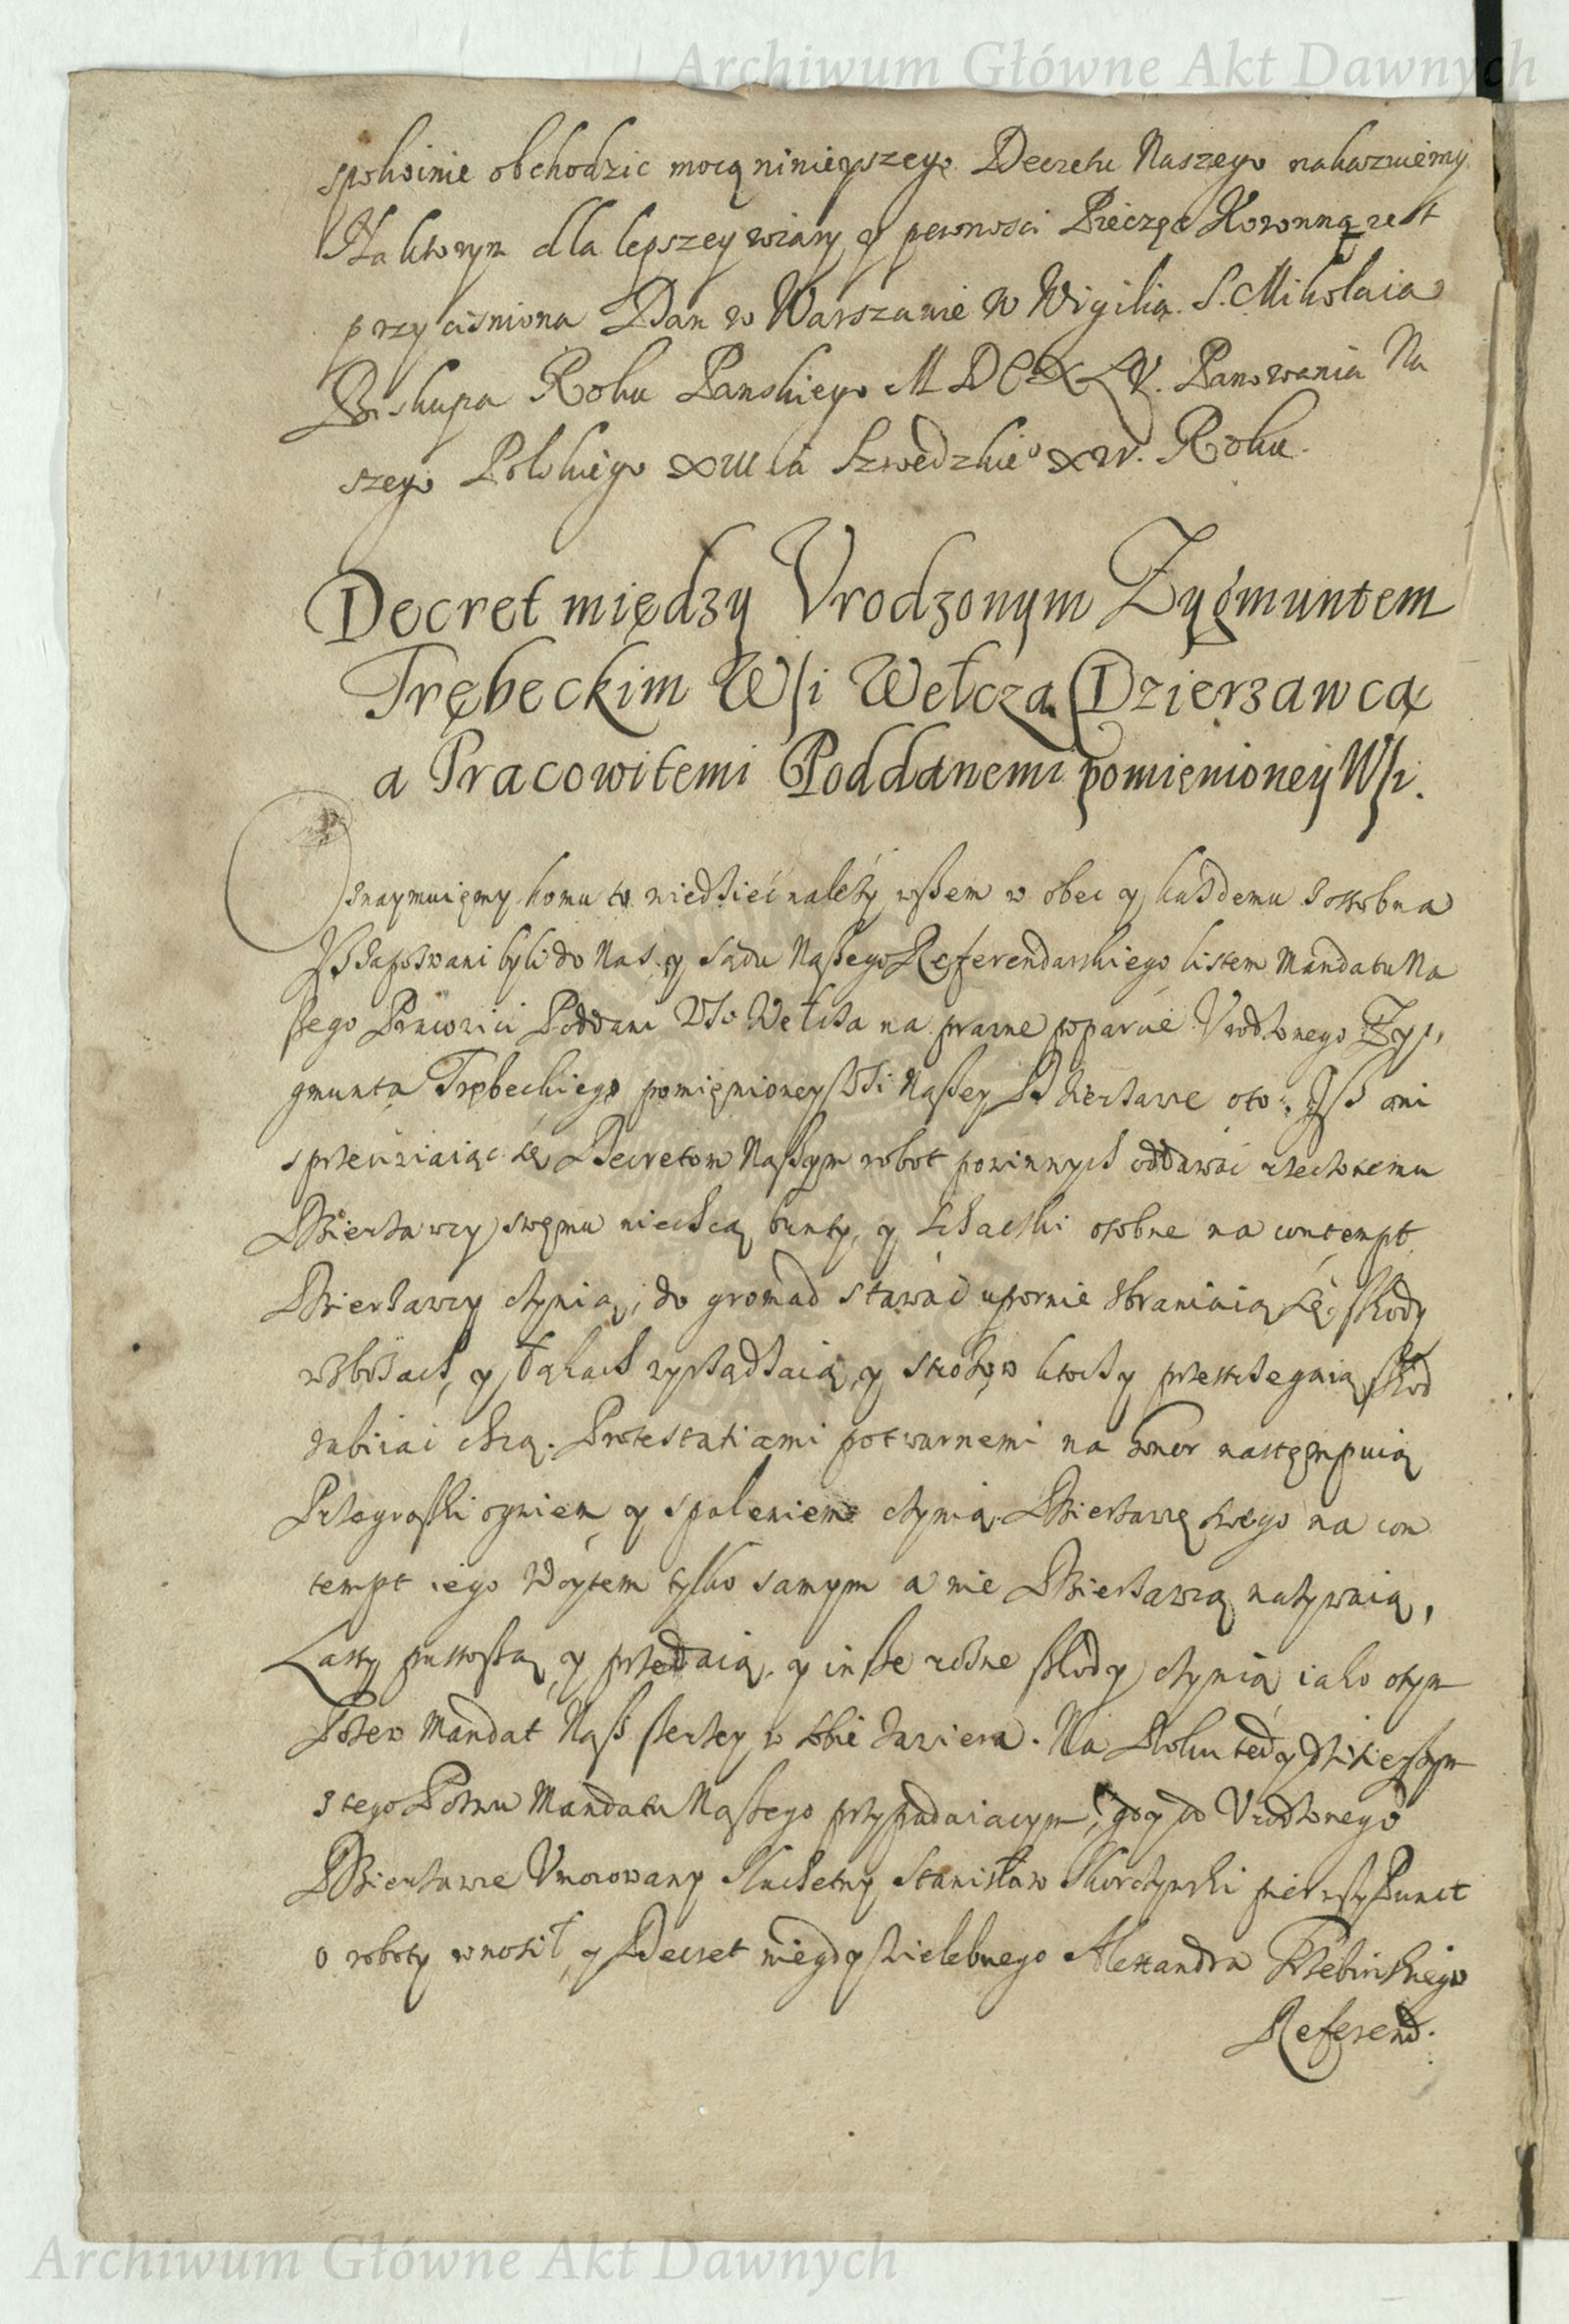 Archiwum Główne Akt Dawnych
spokoinie obchodzic mocą ninieyszego Decretu Naszego nakazuiemy
Na ktorym dla lepszey wiary y pewnosci Pieczęc Koronną iest
przycisniona Dan w Warszawie w Wigilią S. Mikolaia
Biskupa Roku Panskiego MDCXLV. Panowania Na
szego Polskiego XIII a Szwedzkie° XIV. Roku.
Decret między Vrodzonym Zygmuntem
Trębeckim Wsi Wełcza Dzierzawcą
a Pracowitemi Poddanemi pomienioney Wsi.
Oznaymuięmy komu to wiedzieć należy wszem w obec y każdemu zossobna
Iż zapozwani byli do Nas y Sądu Naszego Referendarskiego listem Mandatu Na
szego Pracowici Poddani Wsi Wełcza na prawne poparcie Vrodzonego Zy,
gmunta Trębeckiego pomięnioney Wsi Naszey Dzierżawce oto, Isz oni
sprzeciwiaiąc się Decretom Naszym robot powinnych oddawać rzeczonemu
Dzierżawcy swęmu niechcą bunty, y schacki osobne na contempt
Dzierżawcy czynią, do gromad stawać upornie zbraniaią się, szkody
w zbożach, y łąkach wyrządzaią, y strożow ktorzy przestrzegaią szkod
zabiiać chcą. Protestatiami potwarnemi na honor następuią
Przegroszki ogniem y spaleniem czynią. Dzierżawcę swego na con
tempt iego Woytem tylko samym a nie Dzierżawcą nazywaią,
Lassy pustoszą, y przedaią, y insze rożne szkody czynią iako otym
Pozew Mandat Nasz szerzey w sobie zawiera. Na Roku tedy dzisieyszym
z tego Pozwu Mandatu Naszego przypadaiącym, gdy od Vrodzonego
Dzierżawce Vmocowany Szlachetny Stanisław Skorczynski pierwszy Punct
o roboty wnosił, y Decret niegdy Wielebnego Alexandra Trzebinskiego
Referend.
Archiwum Główne Akt Dawnych